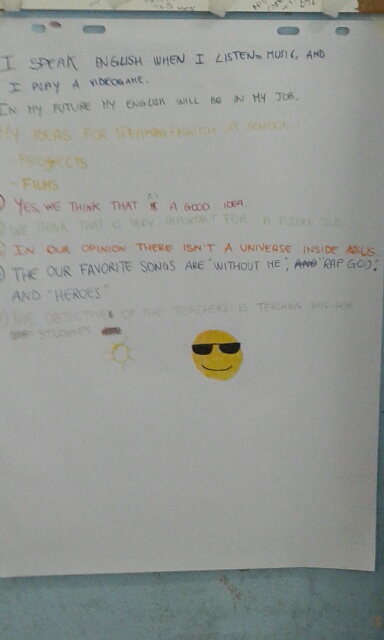 I SPEAK ENGLISH WHEN I LISTEN MUSIC, AND
I PLAY A VIDEOGAME.
IN MY FUTURE MY ENGLISH WILL BE IN MY JOB.
MY IDEAS FOR SPEAKING ENGLISH AT SCHOOL:
- PROJECTS
- FILMS
YES, WE THINK THAT IS A GOOD IDEA.
WE THINK THAT IS VERY IMPORTANT FOR A FUTURE
IN OUR OPINION THERE ISN'T A UNIVERSE INSIDE
THE OUR FAVORITE SONGS ARE "WITHOUT ME", AND "RAP GOD",
AND "HEROES"
THE OF THE TEACHERS IS TEACHING
STUDENT